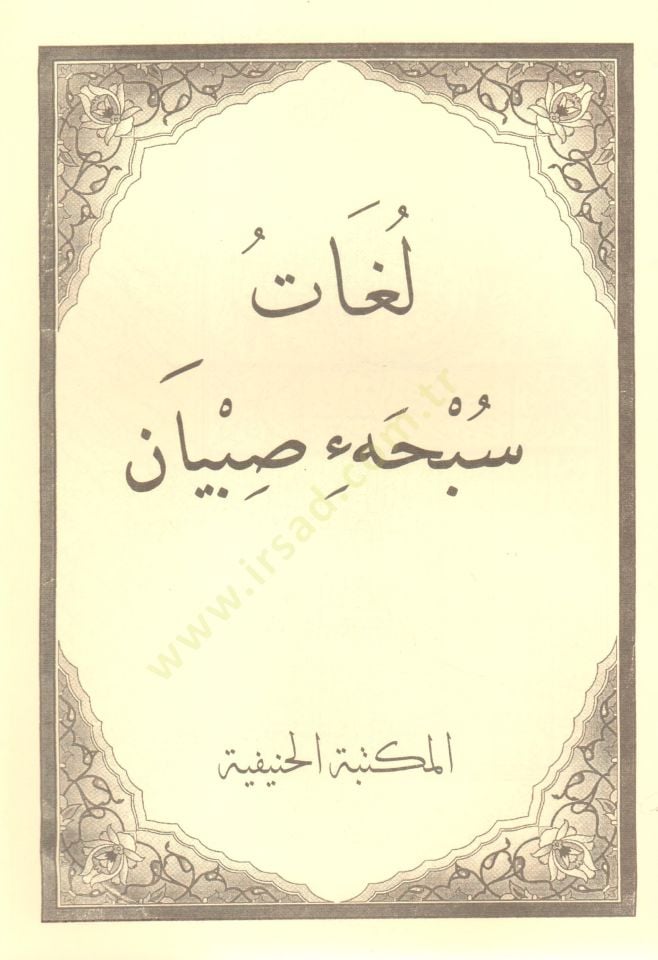 لُغَاتُ
سُبْحَهءِ صِبْيَان
المكتبة الحنيفية
www.irsad.com.tr